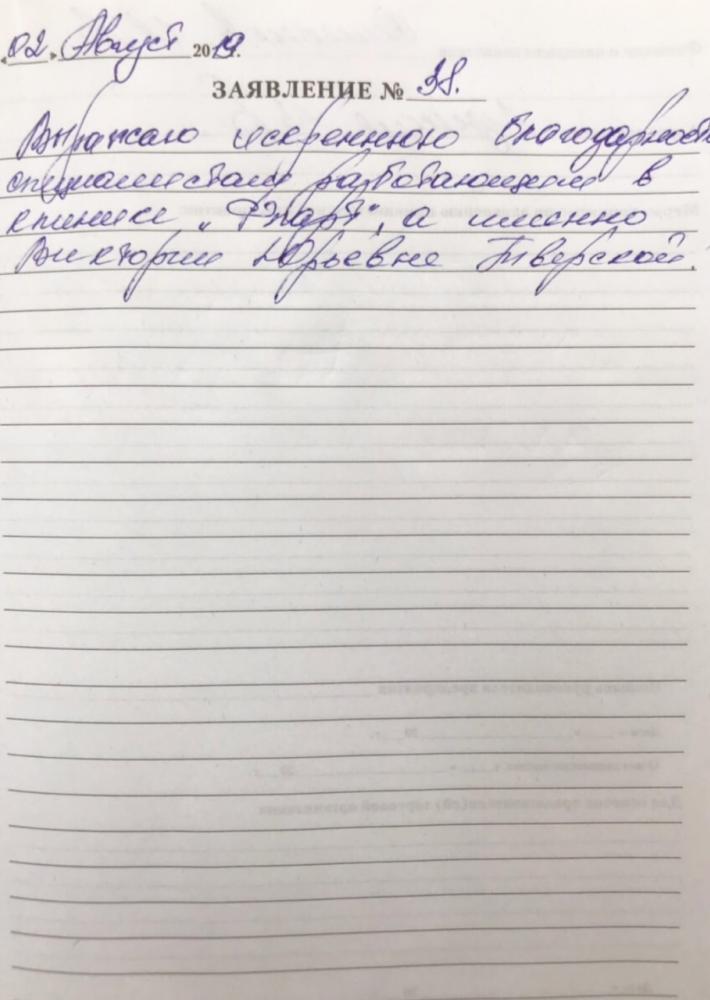 «02» Август 2019.
ЗАЯВЛЕНИЕ № 38.
Выражаю искреннюю благодарность
специалистам работающем в
клинике „ Рларт", а именно
Виктории Юрьевне Тверской.